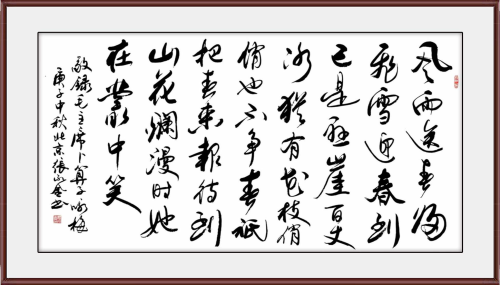 风雨送春归
飞雪迎春到
已是悬崖百丈
冰犹有花枝俏
俏也不争春祇
把春来报待到
山花烂漫时她
在丛中笑
敬录毛主席卜算子咏梅
庚子中秋北京张山叠书